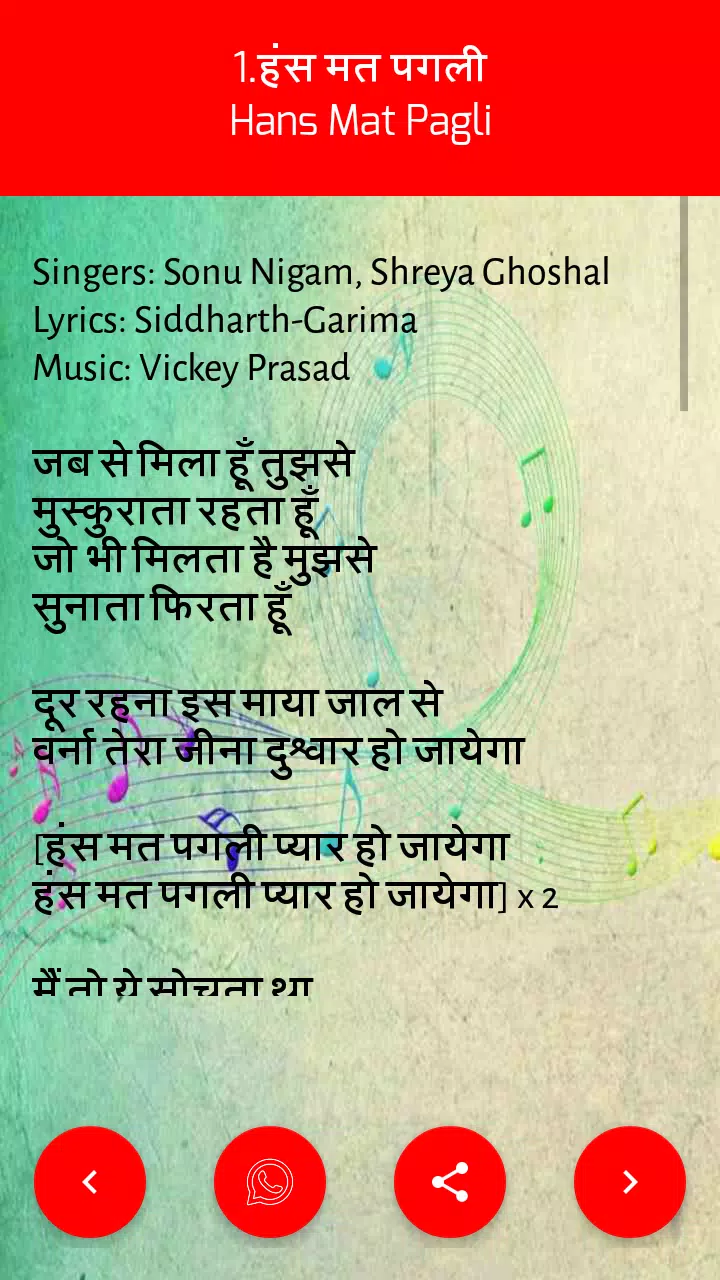 1.हंस मत पगली
Hans Mat Pagli
Singers: Sonu Nigam, Shreya Ghoshal
Lyrics: Siddharth-Garima
Music: Vickey Prasad
जब से मिला हूँ तुझसे
मुस्कुराता रहता हूँ
जो भी मिलता है मुझसे
सुनाता फिरता हूँ
दूर रहना इस माया जाल से
वर्ना तेरा जीना दुश्वार हो जायेगा
[हंस मत पगली प्यार हो जायेगा
हंस मत पगली प्यार हो जायेगा] x 2
मैं तो ये सोचता था